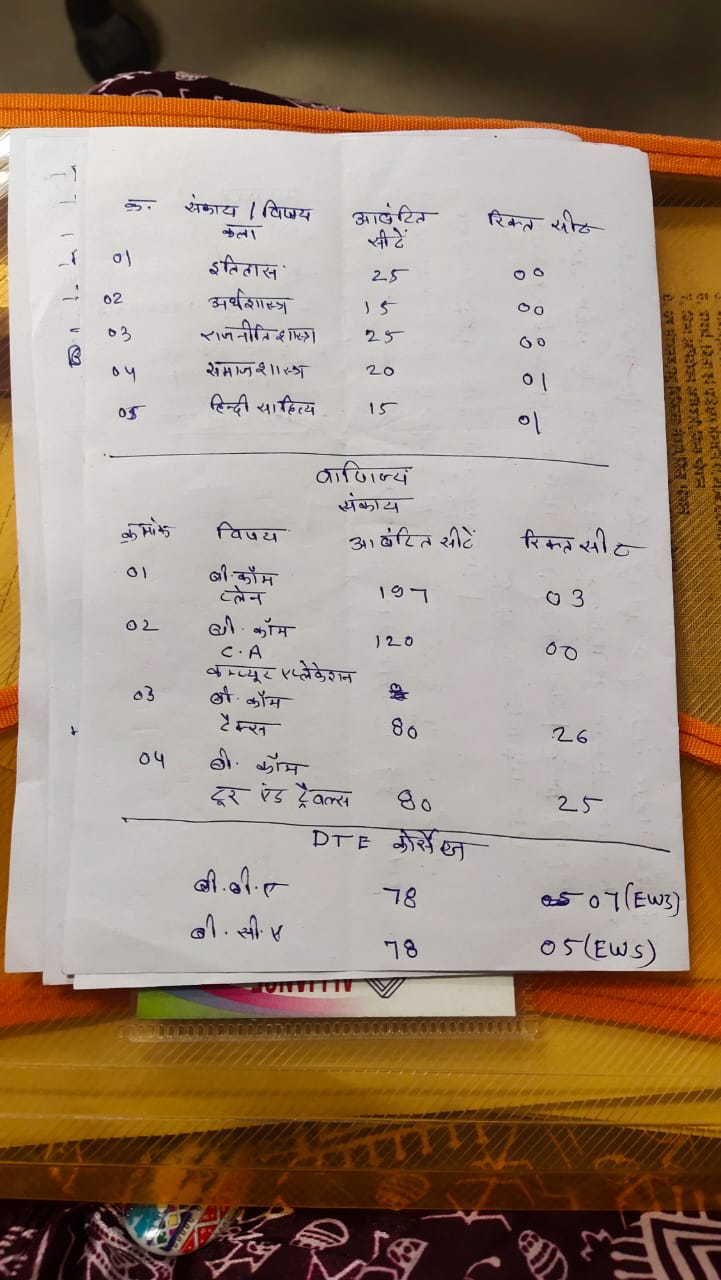 क्र. संकाय / विषय आवंटित रिक्त सीट
कला सीटें
01 इतिहास 25 00
02 अर्थशास्त्र 15 00
03 राजनीति शास्त्र 25 00
04 समाज शास्त्र 20 01
05 हिन्दी साहित्य 15 01
वाणिज्य
संकाय
क्रमांक विषय आवंटित सीटें रिक्त सीट
01 बी.कॉम
प्लेन 197 03
02 बी. कॉम
C.A 120 00
कम्प्यूटर एप्लेकेशन
03 बी. कॉम
टैक्स 80 26
04 बी. कॉम
टूर एंड ट्रैवल्स 80 25
DTE कोर्सेज
बी.बी.ए 78 07 (EWS)
बी. सी. ए 78 05 (EWS)